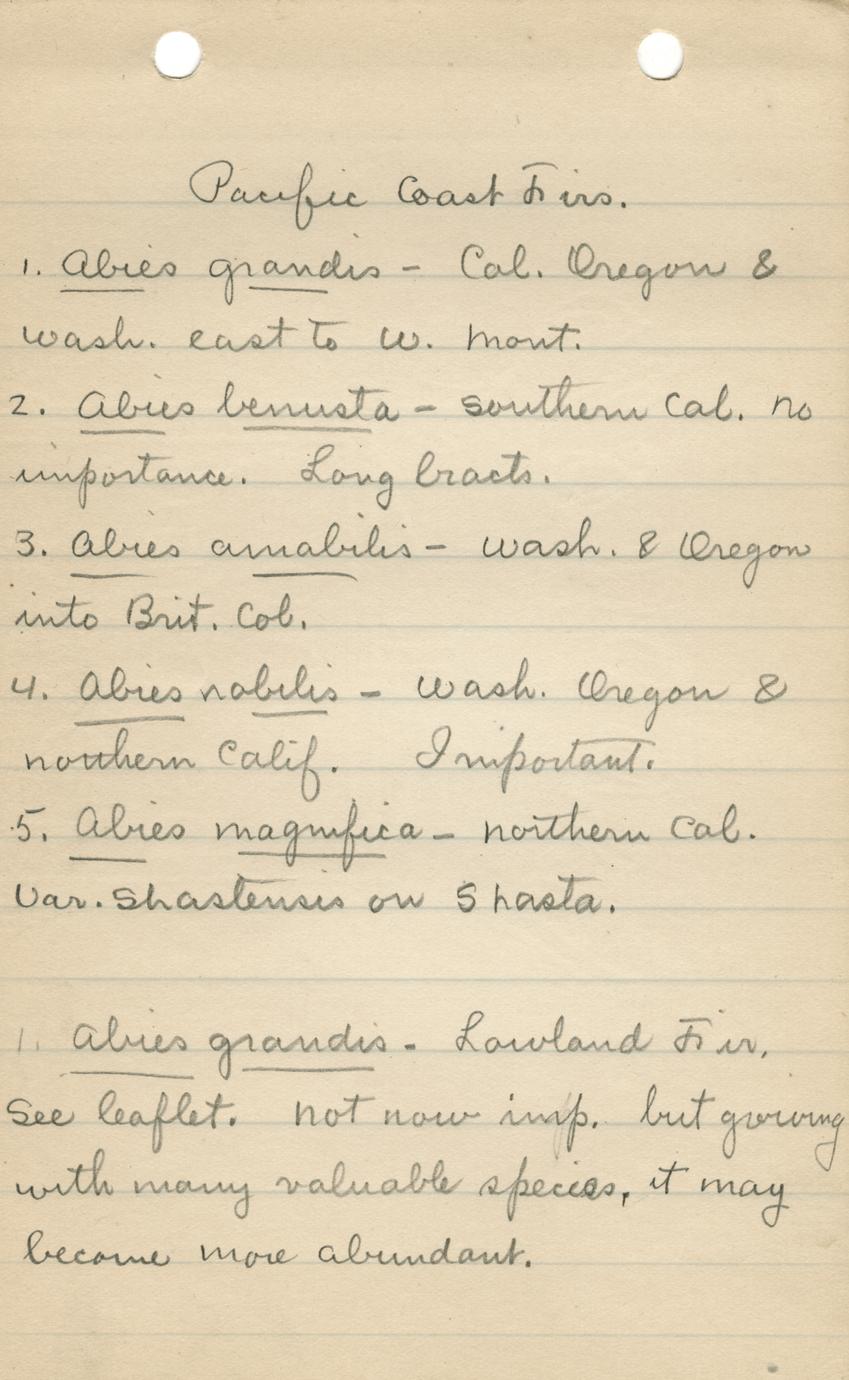 Pacific Coast Firs.
1. Abies grandis - Cal. Oregon &
Wash. east to W. Mont.
2. Abies benusta - southern Cal. No
importance. Long bracts.
3. Abies amabilis - Wash. & Oregon
into Brit. Col.
4. Abies nobilis - Wash. Oregon &
northern Calif. Important.
5. Abies magnifica - northern Cal.
Var. Shastensis on Shasta.
1. Abies grandis - Lowland Fir,
See leaflet. Not now imp. but growing
with many valuable species, it may
become more abundant.